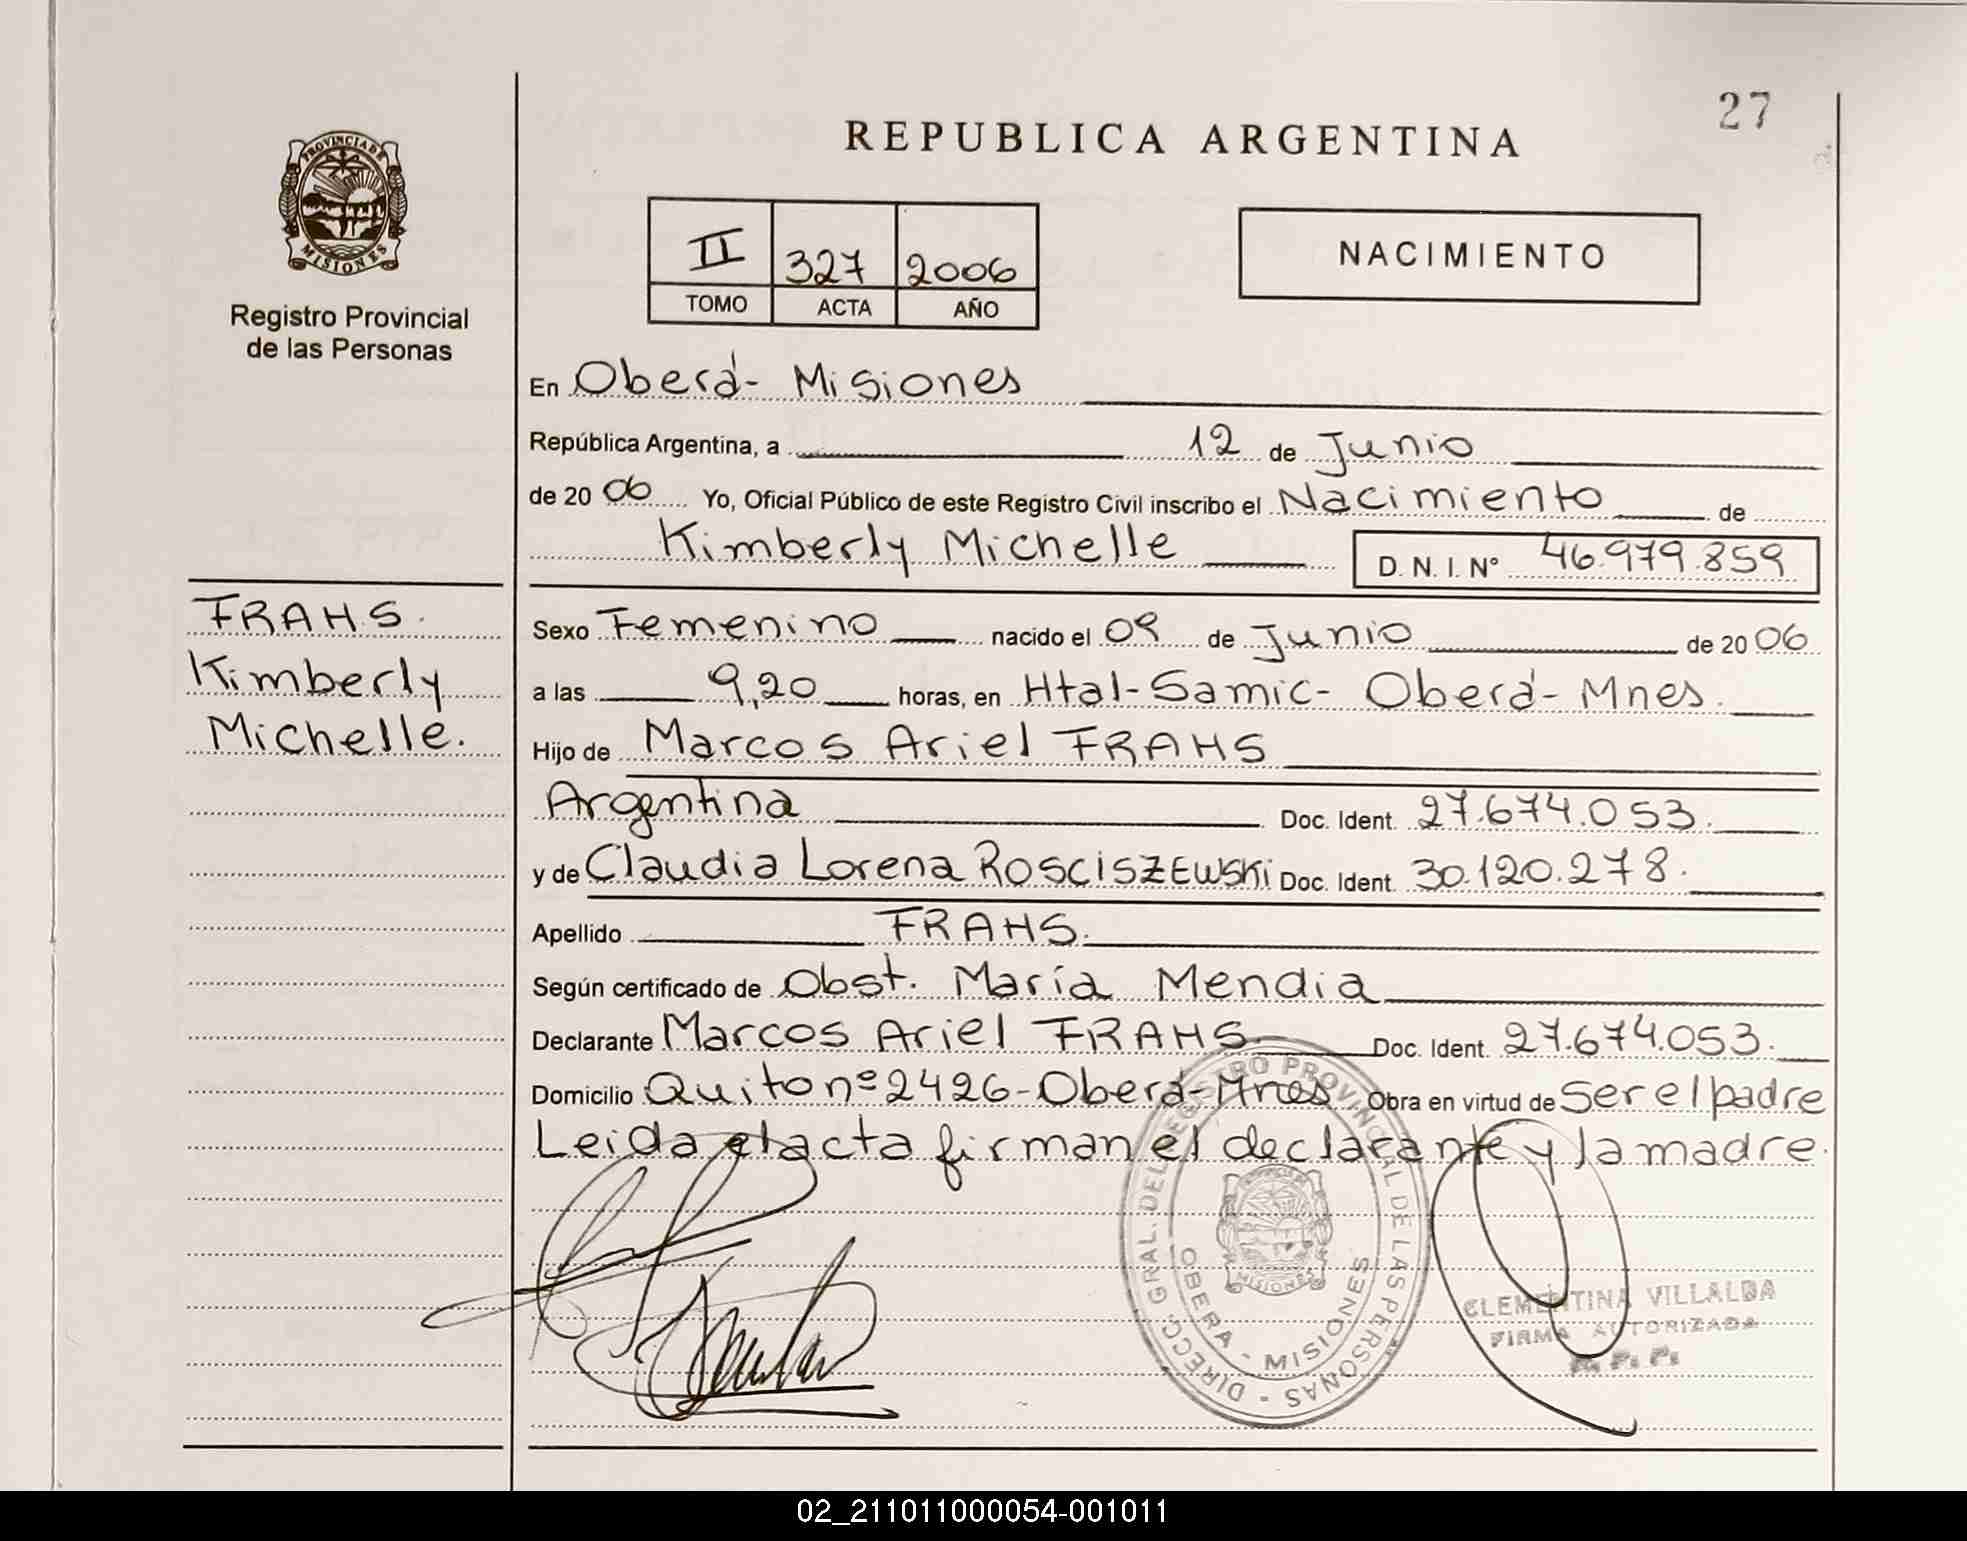 27
REPUBLICA ARGENTINA
PROVINCIA DE
MISIONES
Registro Provincial
de las Personas
II 327 2006
TOMO ACTA AÑO
NACIMIENTO
En Oberá- Misiones
República Argentina, a 12 de Junio
de 20 06 Yo, Oficial Público de este Registro Civil inscribo el Nacimiento de
Kimberly Michelle D. N. I. N° 46.979.859
FRAHS.
Kimberly
Michelle.
Sexo Femenino nacido el 09 de Junio de 20 06
a las 9,20 horas, en Htal-Samic- Oberá- Mnes.
Hijo de Marcos Ariel FRAHS
Argentina Doc. Ident. 27.674.053.
y de Claudia Lorena ROSCISZEWSKi Doc. Ident. 30.120.278.
Apellido FRAHS.
Según certificado de Obst. María Mendia
Declarante Marcos Ariel FRAHS. Doc. Ident. 27.674.053.
Domicilio Quito nº 2426-Oberá-Mnes Obra en virtud de Ser el padre
Leida el acta firman el declarante y la madre.
DIRECC. GRAL. DEL REGISTRO PROVINCIAL DE LAS PERSONAS
OBERA - MISIONES
MISIONES
CLEMENTINA VILLALBA
FIRMA AUTORIZADA
R. P. P.
02_211011000054-001011